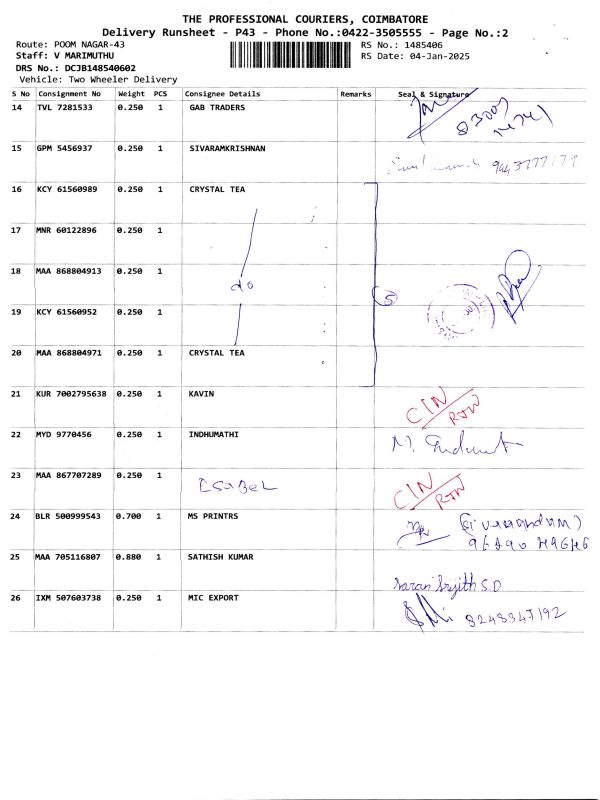 THE PROFESSIONAL COURIERS, COIMBATORE
Delivery Runsheet - P43 - Phone No.:0422-3505555 - Page No.:2
Route: POOM NAGAR-43 RS No.: 1485406
Staff: V MARIMUTHU RS Date: 04-Jan-2025
DRS No.: DCJB148540602
Vehicle: Two Wheeler Delivery
S No Consignment No Weight PCS Consignee Details Remarks Seal & Signature
14 TVL 7281533 0.250 1 GAB TRADERS
15 GPM 5456937 0.250 1 SIVARAMKRISHNAN
16 KCY 61560989 0.250 1 CRYSTAL TEA
17 MNR 60122896 0.250 1
18 MAA 868804913 0.250 1 do
5
19 KCY 61560952 0.250 1
20 MAA 868804971 0.250 1 CRYSTAL TEA
21 KUR 7002795638 0.250 1 KAVIN CIN RTN
22 MYD 9770456 0.250 1 INDHUMATHI
23 MAA 867707289 0.250 1 ISABEL CIN RTN
24 BLR 500999543 0.700 1 MS PRINTRS
25 MAA 705116807 0.880 1 SATHISH KUMAR
Saran Srijith S.D
26 IXM 507603738 0.250 1 MIC EXPORT 8248347192